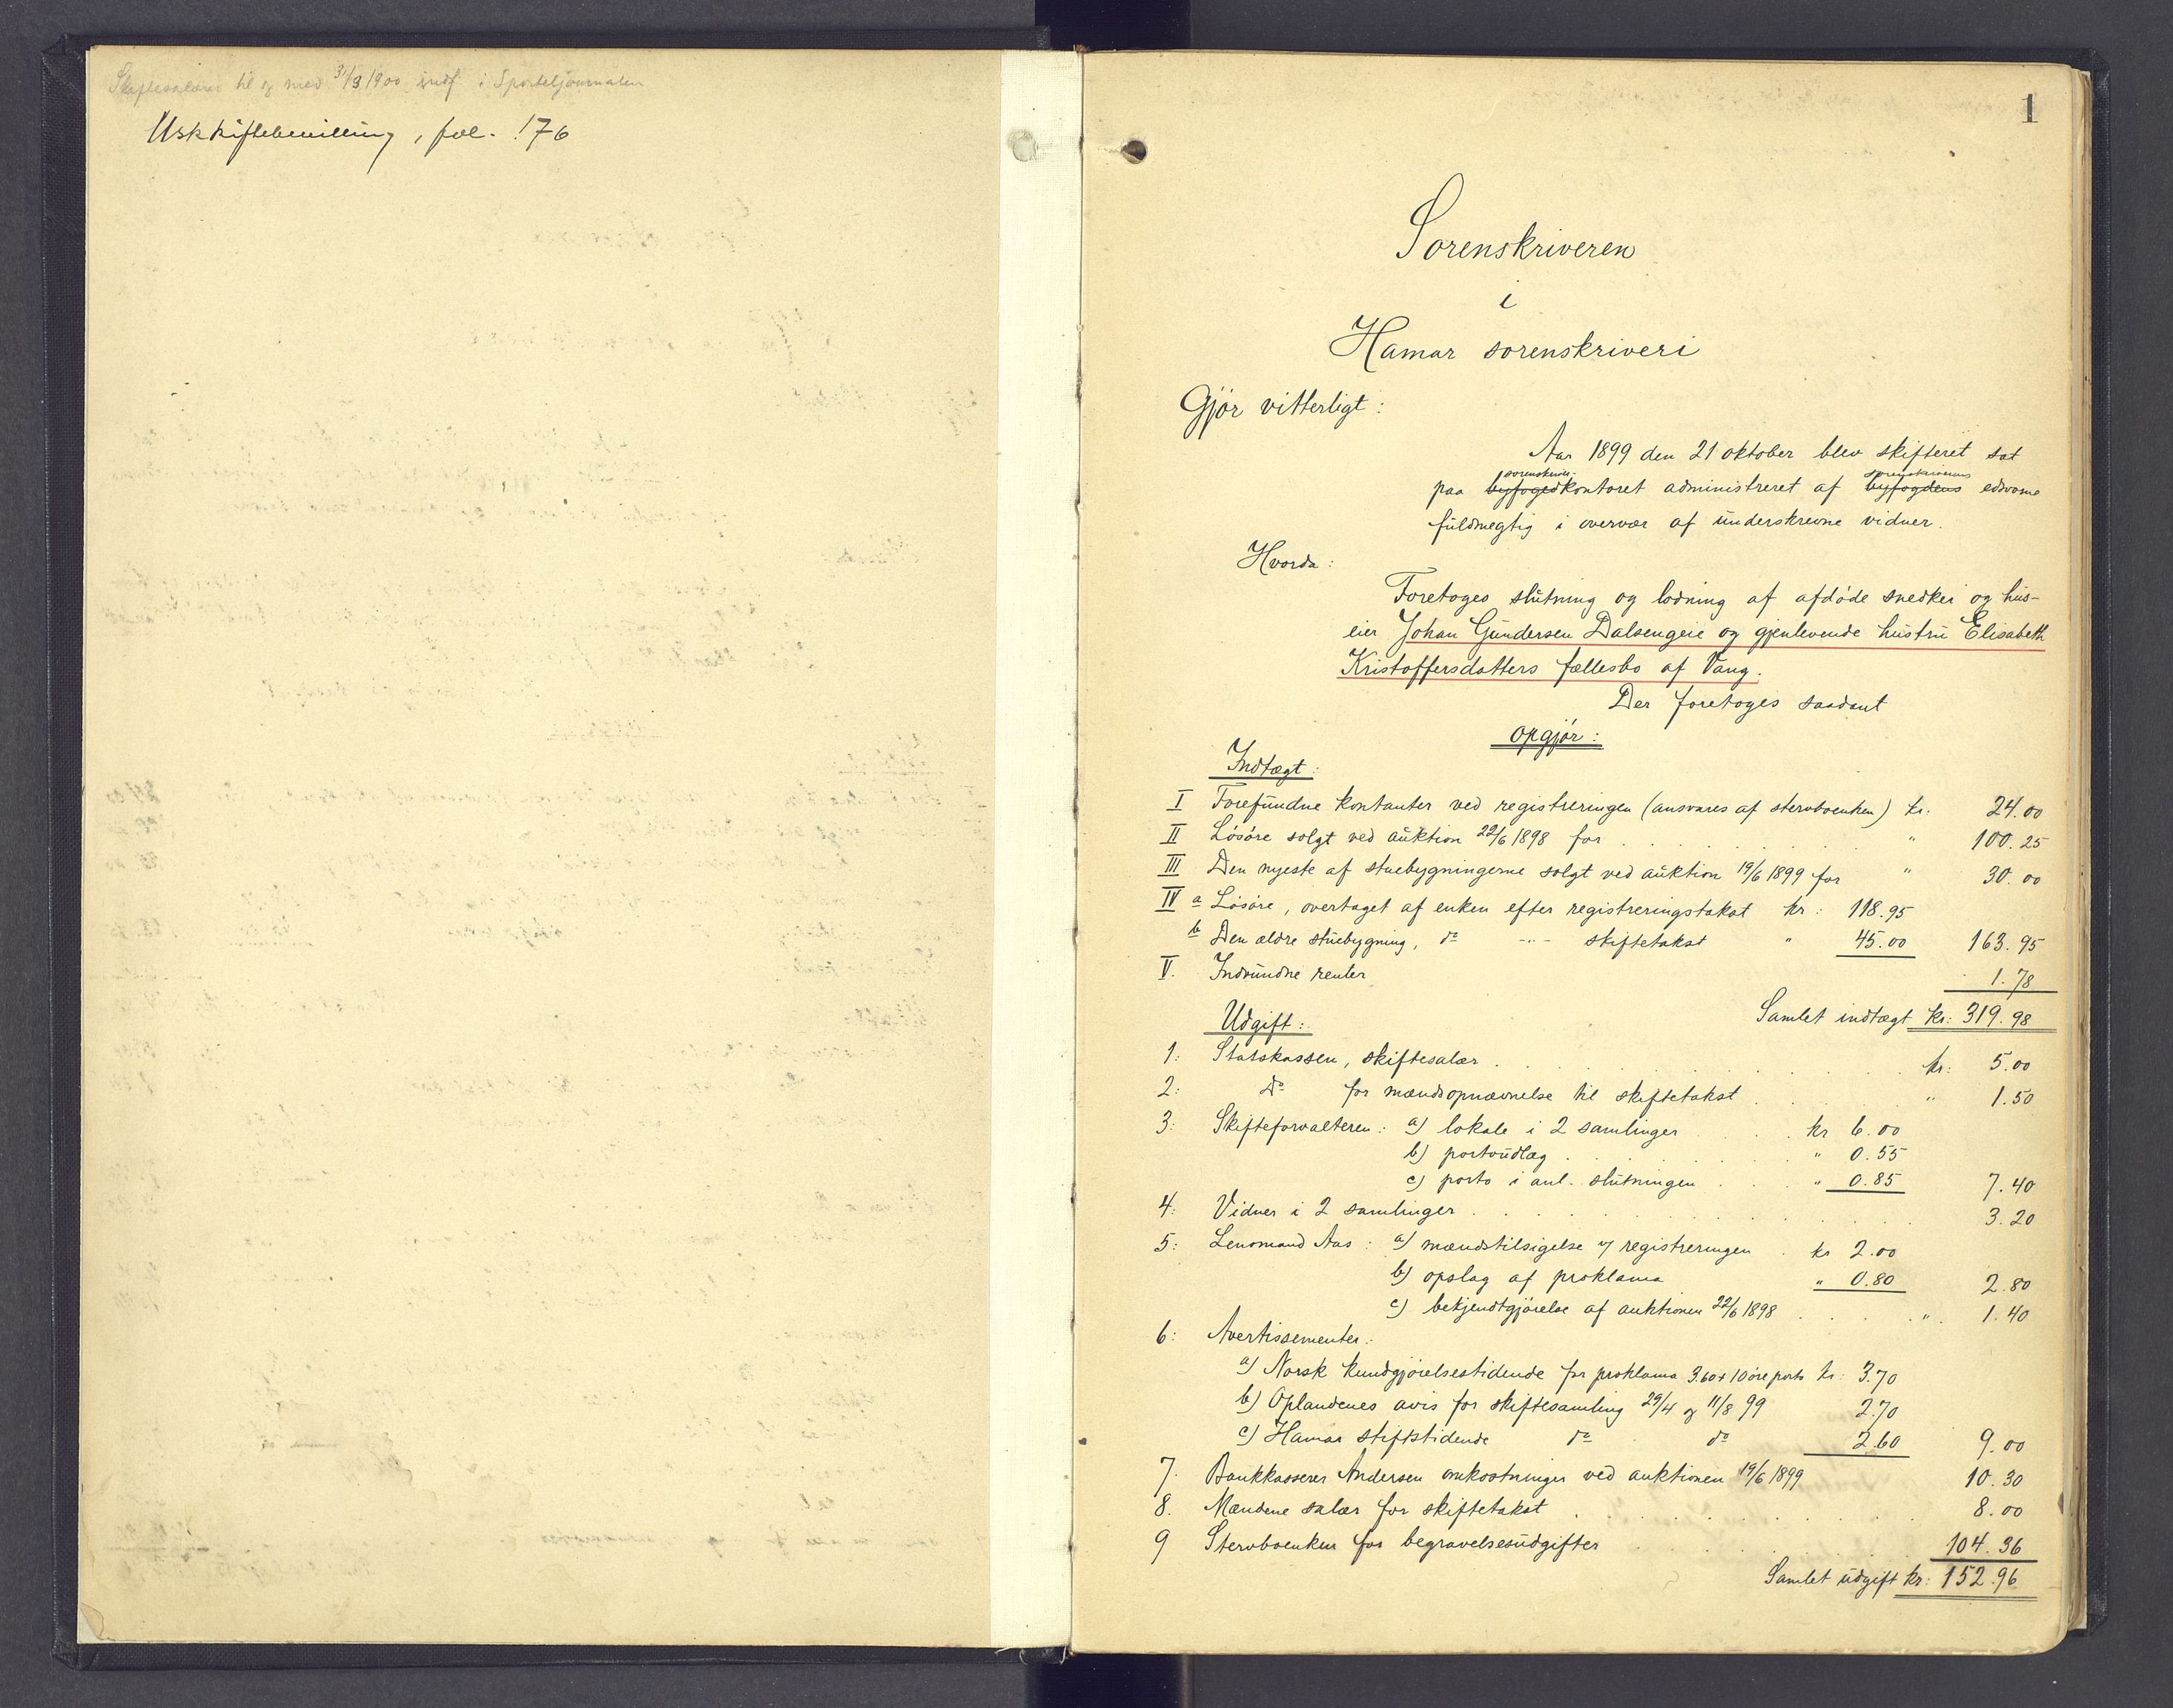 Skiftesalærer til og med 31/3 1900 indf. i Sporteljournalen
Uskiftebevilling, fol. 176
1
Sorenskriveren
i
Hamar sorenskriveri
Gjør vitterligt:
Aar 1899 den 21 oktober blev skifteret sat
sorenskriver- sorenskriverens
paa byfogedkontoret administreret af byfogdens edsvorne
fuldmegtig i overvær af underskrevne vidner.
Hvorda:
Foretoges slutning og lodning af afdøde snedker og hus-
eier Johan Gundersen Dalsengeie og gjenlevende hustru Elisabeth
Kristoffersdatters fællesbo af Vang.
Der foretoges saadant
opgjør:
Indtægt:
I Forefundne kontanter ved registreringen (ansvares af stervboenken) kr. 24.00
II Løsøre solgt ved auktion 22/6 1898 for " 100.25
III Den nyeste af stuebygningerne solgt ved auktion 19/6 1899 for " 30.00
IV a Løsøre, overtaget af enken efter registreringstakst kr: 118.95
b Den ældre stuebygning, do -"- skiftetakst " 45.00 163.95
V. Indvundne renter 1.78
Samlet indtægt kr: 319.98
Udgift:
1: Statskassen, skiftesalær kr: 5.00
2: Do for mændsopnævnelse til skiftetakst " 1.50
3: Skifteforvalteren: a) lokale i 2 samlinger kr 6.00
b) portoudlæg " 0.55
c) porto i anl. slutningen " 0.85 7.40
4: Vidner i 2 samlinger 3.20
5: Lensmand Aas: a) mændstilsigelse v/ registreringen kr 2.00
b) opslag af proklama " 0.80 2.80
c) bekjendtgjørelse af auktionen 22/6 1898 " 1.40
6: Avertissementer:
a) Norsk kundgjørelsestidende for proklama 3.60 + 10 øre porto kr: 3.70
b) Oplandenes avis for skiftesamling 29/4 og 11/8 99 2.70
c) Hamar stiftstidende do do 2.60 9.00
7. Bankkasserer Andersen omkostninger ved auktionen 19/6 1899 10.30
8. Mændene salær for skiftetakst 8.00
9 Stervboenken for begravelsesudgifter 104.36
Samlet udgift kr: 152.96